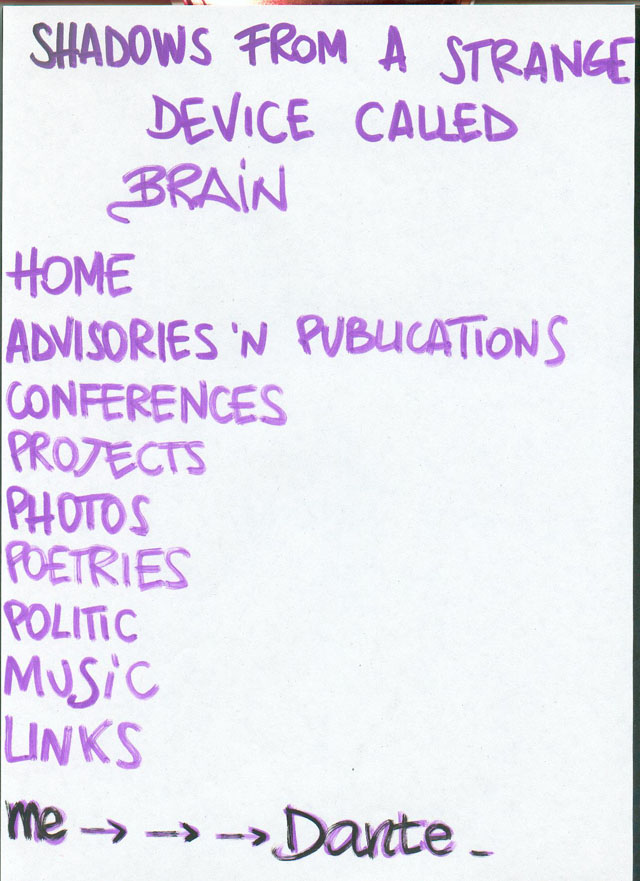 SHADOWS FROM A STRANGE
DEVICE CALLED
BRAiN
HOME
ADVISORIES 'N PUBLICATiONS
CONFERENCES
PROJECTS
PHOTOS
POETRIES
POLITiC
MUSiC
LINKS
me → → → Dante _